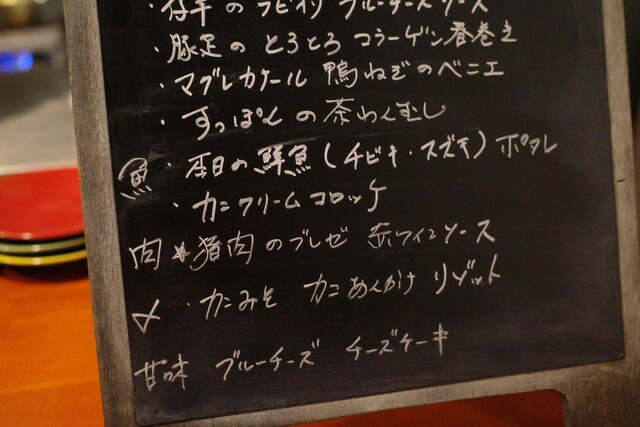 ・仔羊のラビオリ ブルーチーズソース
・豚足の とろとろ コラーゲン春巻き
・マグレカナール 鴨ねぎのベニエ
・すっぽんの茶わんむし
魚・本日の鮮魚(チビキ・スズキ)ポワレ
・カニクリームコロッケ
肉・猪肉のブレゼ 赤ワインソース
〆・カニみそ カニあんかけ リゾット
甘味 ブルーチーズ チーズケーキ